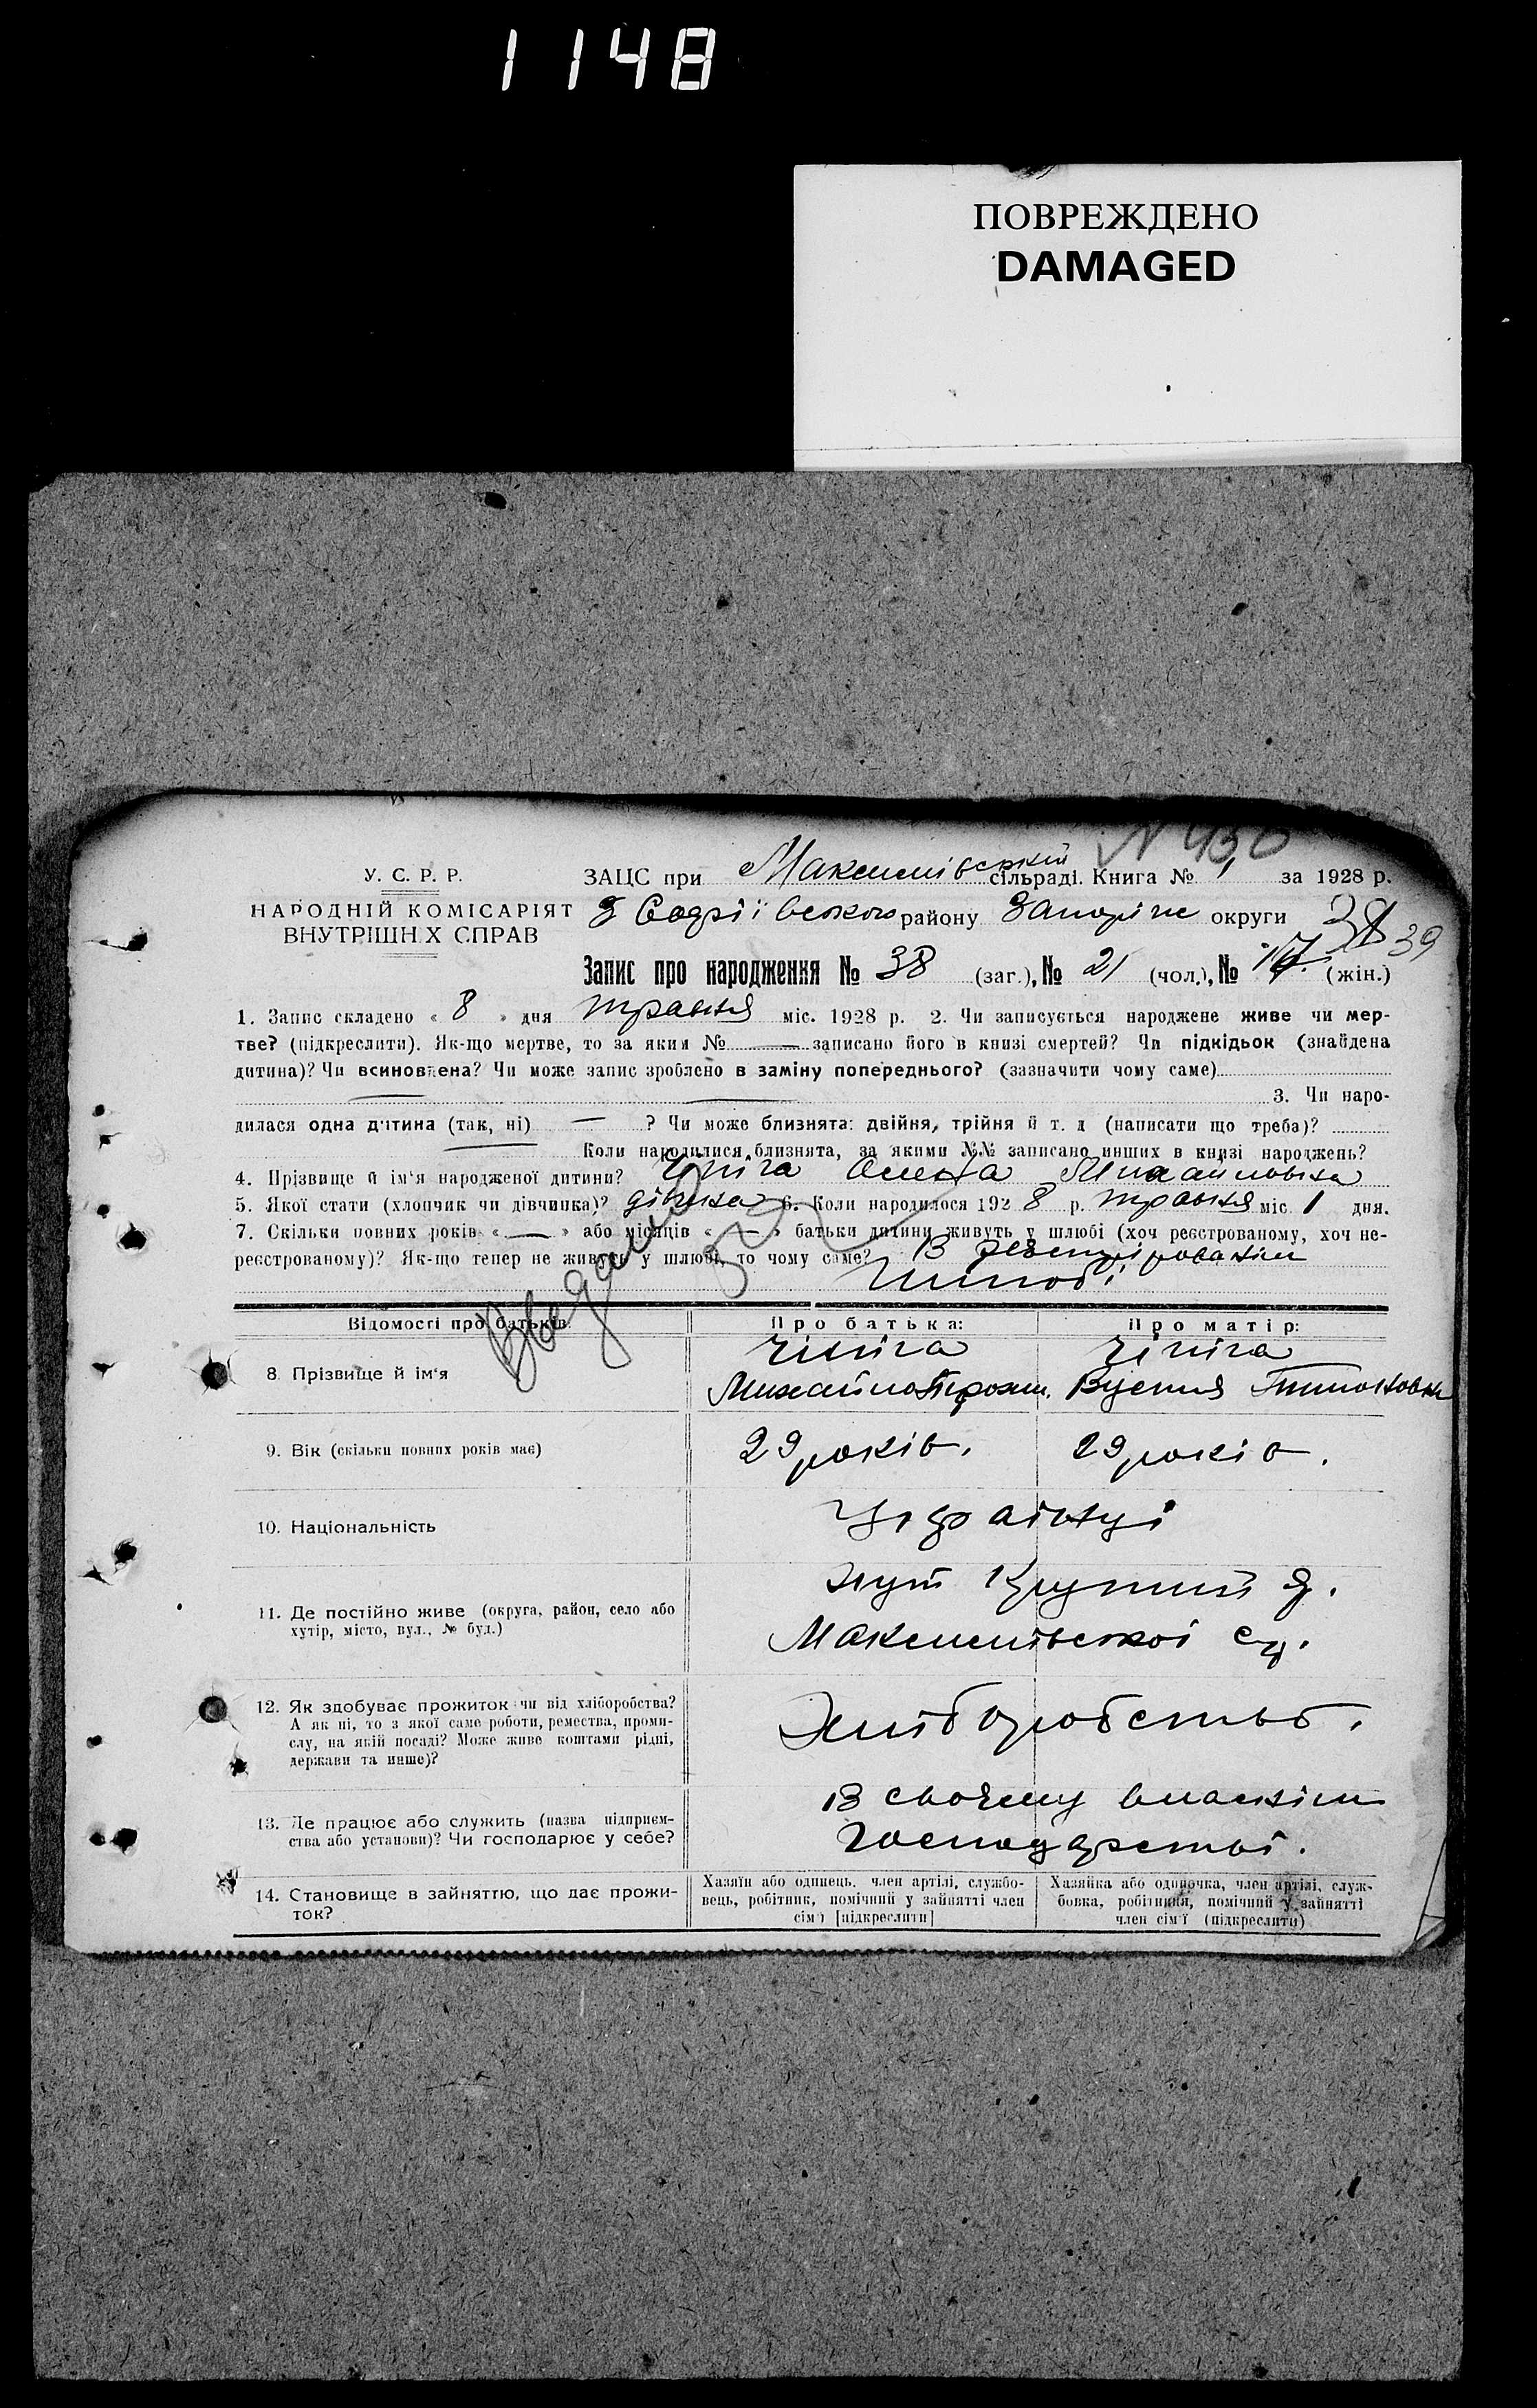 1148
ПОВРЕЖДЕНО
DAMAGED
У. С. Р. Р.
НАРОДНІЙ КОМІСАРІЯТ
ВНУТРІШН Х СПРАВ
ЗАЦС при Максимівській сільраді. Книга № 1 за 1928 р.
району Запоріж округи 38 39
Запис про народження № 38 (заг.), № 21 (чол.), № 17 (жін.)
1. Запис складено « 8 » дня травня міс. 1928 р. 2. Чи записується народжене живе чи мер-
тве? (підкреслити). Як-що мертве, то за яким № — записано його в книзі смертей? Чи підкідьок (знайдена
дитина)? Чи всиновлена? Чи може запис зроблено в заміну попереднього? (зазначити чому саме)
3. Чи наро-
дилася одна дитина (так, ні) — ? Чи може близнята: двійня, трійня й т. д (написати що треба)?
Коли народилися близнята, за якими №№ записано инших в книзі народжень?
4. Прізвище й ім'я народженої дитини? Чіпіга Олена Михайловна
5. Якої стати (хлопчик чи дівчинка)? дівчина 6. Коли народилося 192 8 р. травня міс 1 дня.
7. Скільки повних років « — » або місяців « — » батьки дитини живуть у шлюбі (хоч реєстрованому, хоч не-
реєстрованому)? Як-що тепер не живуть у шлюбі, то чому саме? В
шлюбі
Відомості про батьків:
Про батька:
Про матір:
8. Прізвище й ім'я
Чіпіга
Михайло Трохим.
Чіпіга
9. Вік (скільки повних років має)
29 років.
29 років.
10. Національність
Українці
11. Де постійно живе (округа, район, село або
хутір, місто, вул., № буд.)
хут
Максимівської с/р.
12. Як здобуває прожиток чи від хліборобства?
А як ні, то з якої саме роботи, ремества, проми-
слу, на якій посаді? Може живе коштами рідні,
держави та инше)?
Хліборобством.
13. Де працює або служить (назва підприєм-
ства або установи)? Чи господарює у себе?
В своєму власнім
господарстві.
14. Становище в зайняттю, що дає прожи-
ток?
Хазяїн або одинець, член артілі, службо-
вець, робітник, помічний у зайнятті член
сім'ї [підкреслити]
Хазяйка або одиночка, член артілі, служ-
бовка, робітниця, помічний у зайнятті
член сім'ї (підкреслити)